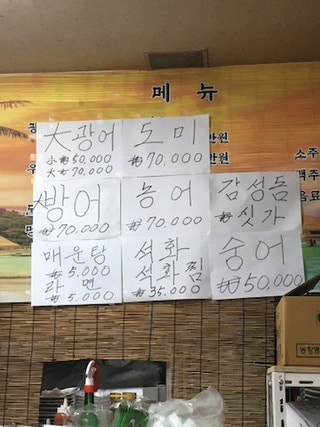 메뉴
大광어
小₩50,000
大₩70,000
도미
₩70,000
만원
만원
소주
맥주
음료
방어
₩70,000
농어
₩70,000
감성돔
싯가
매운탕
₩5,000
라면
₩5,000
석화
석화찜
₩35,000
숭어
₩50,000